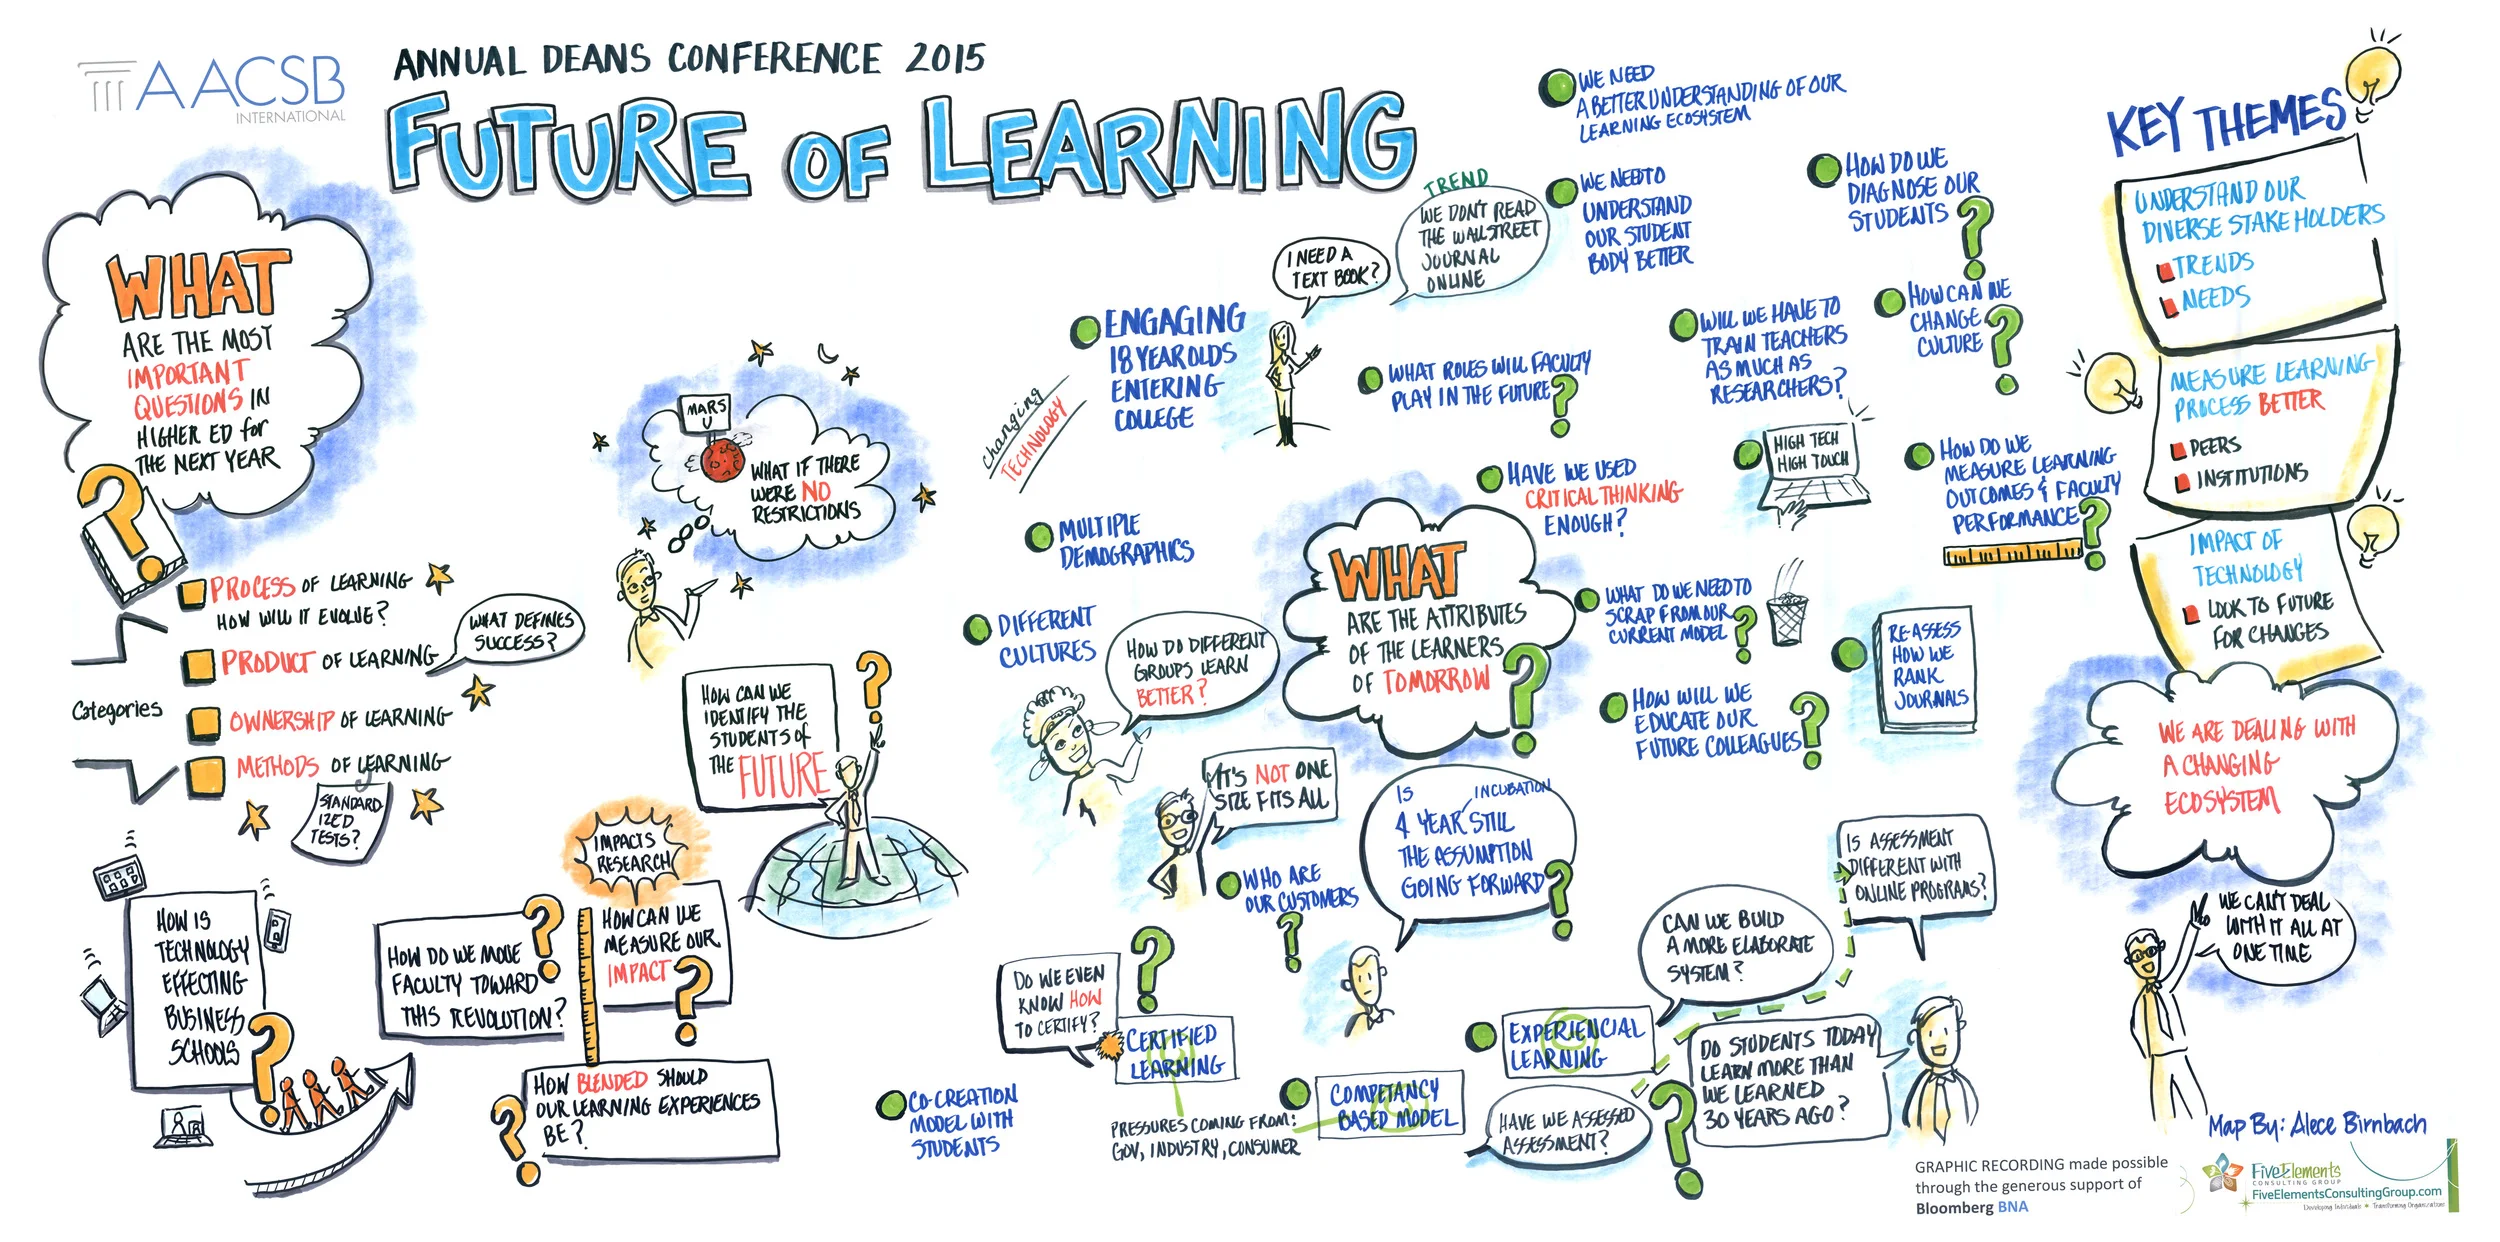 AACSB
INTERNATIONAL
ANNUAL DEANS CONFERENCE 2015
FUTURE OF LEARNING
WHAT
ARE THE MOST
IMPORTANT
QUESTIONS IN
HIGHER ED for
THE NEXT YEAR
Categories
PROCESS OF LEARNING
HOW WILL IT EVOLVE?
PRODUCT OF LEARNING
WHAT DEFINES
SUCCESS?
OWNERSHIP OF LEARNING
METHODS OF LEARNING
STANDARD
IZED
TESTS?
HOW IS
TECHNOLOGY
EFFECTING
BUSINESS
SCHOOLS
?
HOW DO WE MOVE
FACULTY TOWARD
THIS REVOLUTION?
?
IMPACTS
RESEARCH
HOW CAN WE
MEASURE OUR
IMPACT
?
HOW BLENDED SHOULD
OUR LEARNING EXPERIENCES
BE?
?
MARS
U
WHAT IF THERE
WERE NO
RESTRICTIONS
HOW CAN WE
IDENTIFY THE
STUDENTS of
THE FUTURE
?
changing
TECHNOLOGY
ENGAGING
18 YEAR OLDS
ENTERING
COLLEGE
I NEED A
TEXT BOOK?
TREND
WE DON'T READ
THE WALLSTREET
JOURNAL
ONLINE
WE NEED
A BETTER UNDERSTANDING OF OUR
LEARNING ECOSYSTEM
WE NEED TO
UNDERSTAND
OUR STUDENT
BODY BETTER
HOW DO WE
DIAGNOSE OUR
STUDENTS ?
WHAT ROLES WILL FACULTY
PLAY IN THE FUTURE?
WILL WE HAVE TO
TRAIN TEACHERS
AS MUCH AS
RESEARCHERS?
HOW CAN WE
CHANGE
CULTURE ?
MULTIPLE
DEMOGRAPHICS
HAVE WE USED
CRITICAL THINKING
ENOUGH?
HIGH TECH
HIGH TOUCH
HOW DO WE
MEASURE LEARNING
OUTCOMES & FACULTY
PERFORMANCE ?
DIFFERENT
CULTURES
HOW DO DIFFERENT
GROUPS LEARN
BETTER?
WHAT
ARE THE ATTRIBUTES
OF THE LEARNERS
OF TOMORROW ?
WHAT DO WE NEED TO
SCRAP FROM OUR
CURRENT MODEL ?
RE-ASSESS
HOW WE
RANK
JOURNALS
HOW WILL WE
EDUCATE OUR
FUTURE COLLEAGUES ?
IT'S NOT ONE
SIZE FITS ALL
WHO ARE
OUR CUSTOMERS
?
IS INCUBATION
4 YEAR STILL
THE ASSUMPTION
GOING FORWARD ?
DO WE EVEN
KNOW HOW
TO CERTIFY?
?
CERTIFIED
LEARNING
PRESSURES COMING FROM:
GOV, INDUSTRY, CONSUMER
COMPETANCY
BASED MODEL
CO-CREATION
MODEL WITH
STUDENTS
EXPERIENCIAL
LEARNING
CAN WE BUILD
A MORE ELABORATE
SYSTEM?
IS ASSESSMENT
DIFFERENT WITH
ONLINE PROGRAMS?
HAVE WE ASSESSED
ASSESSMENT?
?
DO STUDENTS TODAY
LEARN MORE THAN
WE LEARNED
30 YEARS AGO?
KEY THEMES
UNDERSTAND OUR
DIVERSE STAKEHOLDERS
TRENDS
NEEDS
MEASURE LEARNING
PROCESS BETTER
PEERS
INSTITUTIONS
IMPACT OF
TECHNOLOGY
LOOK TO FUTURE
FOR CHANGES
WE ARE DEALING WITH
A CHANGING
ECOSYSTEM
WE CAN'T DEAL
WITH IT ALL AT
ONE TIME
Map By: Alece Birnbach
GRAPHIC RECORDING made possible
through the generous support of
Bloomberg BNA
FiveElements
CONSULTING GROUP
FiveElementsConsultingGroup.com
Developing Individuals Transforming Organizations